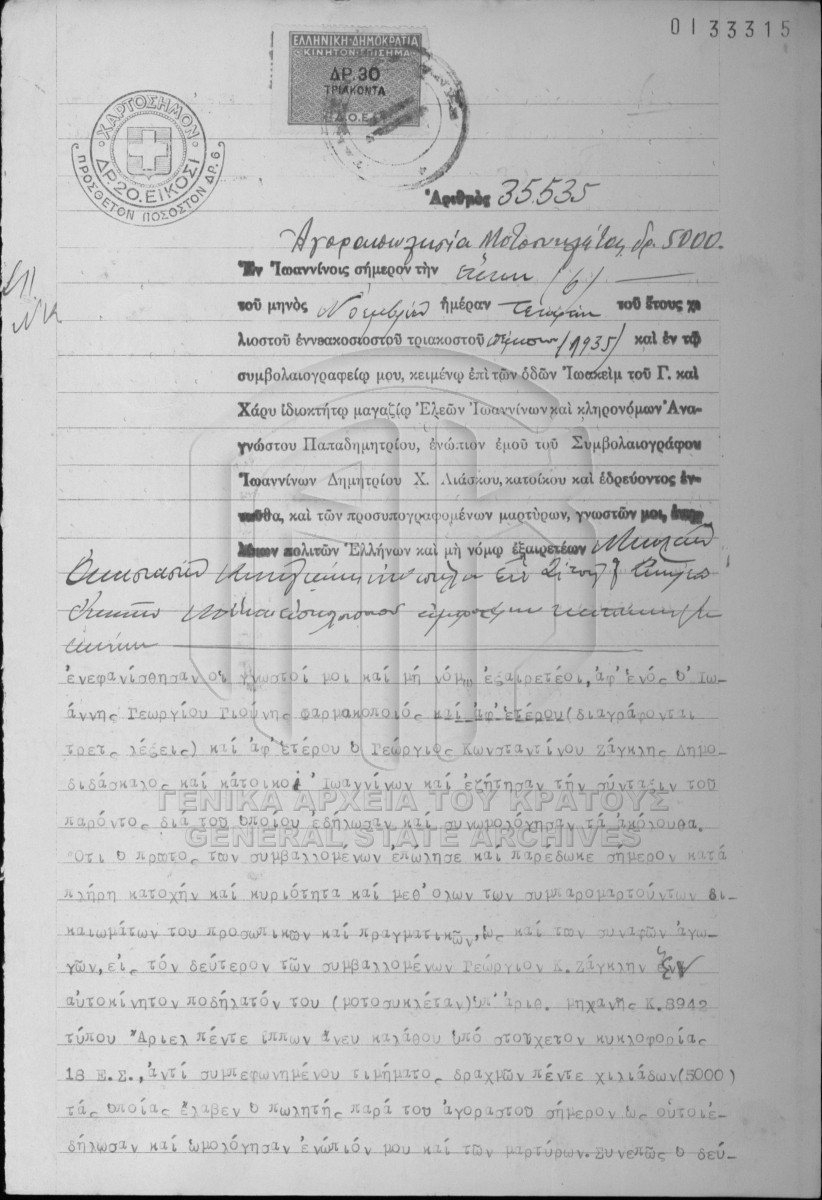 0133315
ΕΛΛΗΝΙΚΗ ΔΗΜΟΚΡΑΤΙΑ
ΚΙΝΗΤΟΝ ΕΠΙΣΗΜΑ
ΔΡ. 30
ΤΡΙΑΚΟΝΤΑ
Δ.Ο.Ε.
ΧΑΡΤΟΣΗΜΟΝ
ΔΡ. 20. ΕΙΚΟΣΙ
ΠΡΟΣΘΕΤΟΝ ΠΟΣΟΣΤΟΝ ΔΡ. 6
Ἀριθμὸς 35.535
Ἀγοραπωλησία Μοτοσυκλέτας δρ. 5000.
Ἐν Ἰωαννίνοις σήμερον τὴν ἕκτην (6)
τοῦ μηνὸς Νοεμβρίου ἡμέραν Τετάρτην τοῦ ἔτους χι
λιοστοῦ ἐννεακοσιοστοῦ τριακοστοῦ πέμπτου (1935) καὶ ἐν τῷ
συμβολαιογραφείῳ μου, κειμένῳ ἐπὶ τῶν ὁδῶν Ἰωακεὶμ τοῦ Γ. καὶ
Χάρυ ἰδιοκτήτῳ μαγαζίῳ Ἐλεῶν Ἰωαννίνων καὶ κληρονόμων Ἀνα-
γνώστου Παπαδημητρίου, ἐνώπιον ἐμοῦ τοῦ Συμβολαιογράφου
Ἰωαννίνων Δημητρίου Χ. Λιάσκου, κατοίκου καὶ ἑδρεύοντος ἐν-
ταῦθα, καὶ τῶν προσυπογραφομένων μαρτύρων, γνωστῶν μοι, ἐνηλ
λίκων πολιτῶν Ἑλλήνων καὶ μὴ νόμῳ ἐξαιρετέων
ἐνεφανίσθησαν οἱ γνωστοί μοι καί μή νόμῳ ἐξαιρετέοι, ἀφ'ἑνός ὁ Ἰω-
άννης Γεωργίου Γιούνης φαρμακοποιός καί ἀφ'ἑτέρου (διαγράφονται
τρεῖς λέξεις) καί ἀφ'ἑτέρου ὁ Γεώργιος Κωνσταντίνου Ζάγκλης Δημο-
διδάσκαλος καί κάτοικοι Ἰωαννίνων καί ἐζήτησαν τήν σύνταξιν τοῦ
παρόντος διά τοῦ ὁποίου ἐδήλωσαν καί συνωμολόγησαν τά ἀκόλουθα.
Ὅτι ὁ πρῶτος τῶν συμβαλλομένων ἐπώλησε καί παρέδωκε σήμερον κατά
πλήρη κατοχήν καί κυριότητα καί μεθ'ὅλων τῶν συμπαρομαρτούντων δι-
καιωμάτων του προσωπικῶν καί πραγματικῶν, ὡς καί τῶν συναφῶν ἀγω-
γῶν, εἰς τόν δεύτερον τῶν συμβαλλομένων Γεώργιον Κ. Ζάγκλην ἕν
αὐτοκίνητον ποδήλατόν του (μοτοσυκλέταν) ὑπ' ἀριθ. μηχανῆς Κ. 8942
τύπου Ἄριελ πέντε ἵππων ἄνευ καλάθου ὑπό στοιχεῖον κυκλοφορίας
18 Ε.Σ., ἀντί συμπεφωνημένου τιμήματος δραχμῶν πέντε χιλιάδων (5000)
τάς ὁποίας ἔλαβεν ὁ πωλητής παρά τοῦ ἀγοραστοῦ σήμερον ὡς οὗτοι ἐ-
δήλωσαν καί ὡμολόγησαν ἐνώπιόν μου καί τῶν μαρτύρων. Συνεπῶς ὁ δεύ-
ΓΕΝΙΚΑ ΑΡΧΕΙΑ ΤΟΥ ΚΡΑΤΟΥΣ
GENERAL STATE ARCHIVES